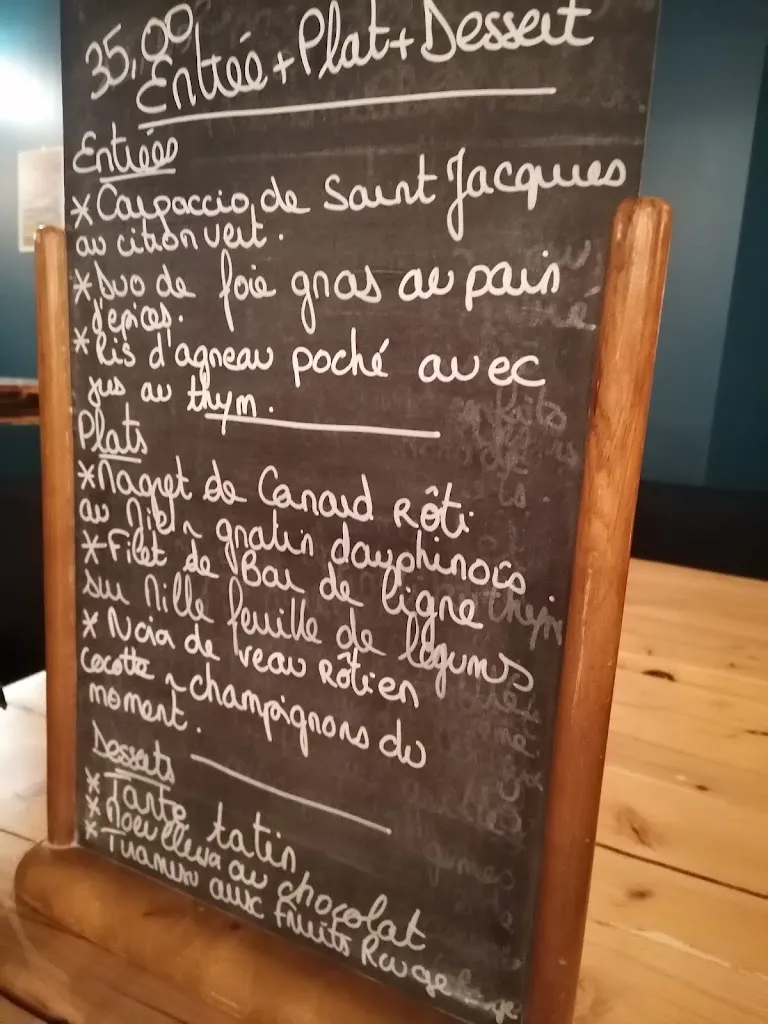 35,00
Entrée + Plat + Dessert
Entrées
* Carpaccio de Saint Jacques
au citron vert.
* Duo de foie gras au pain
d'épices.
* Ris d'agneau poché avec
jus au thym.
Plats
* Magret de Canard Rôti
au Miel ~ gratin dauphinois.
* Filet de Bar de ligne
sur Mille feuille de légumes
* Noix de veau Rôti en
Cocotte ~ champignons du
moment.
Desserts
* Tarte tatin
* Moelleux au chocolat
* Tiramisu aux Fruits Rouge